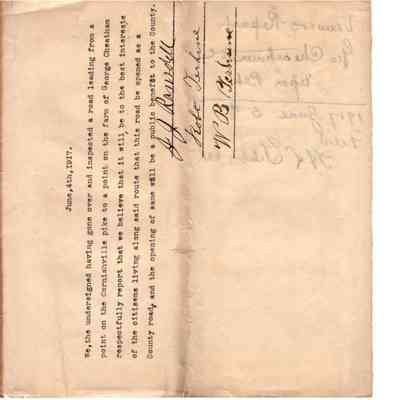 June,4th,1917.
We,the undersigned having gone over and inspected a road leading from a
point on the Cornishville pike to a point on the farm of George Cheatham
respectfully report that we believe that it will, be to the best interests
of the citizens living along said route that this road be opened as a
County road, and the opening of same will be a public benefit to the County.
Robt Perkins
W B Perkins